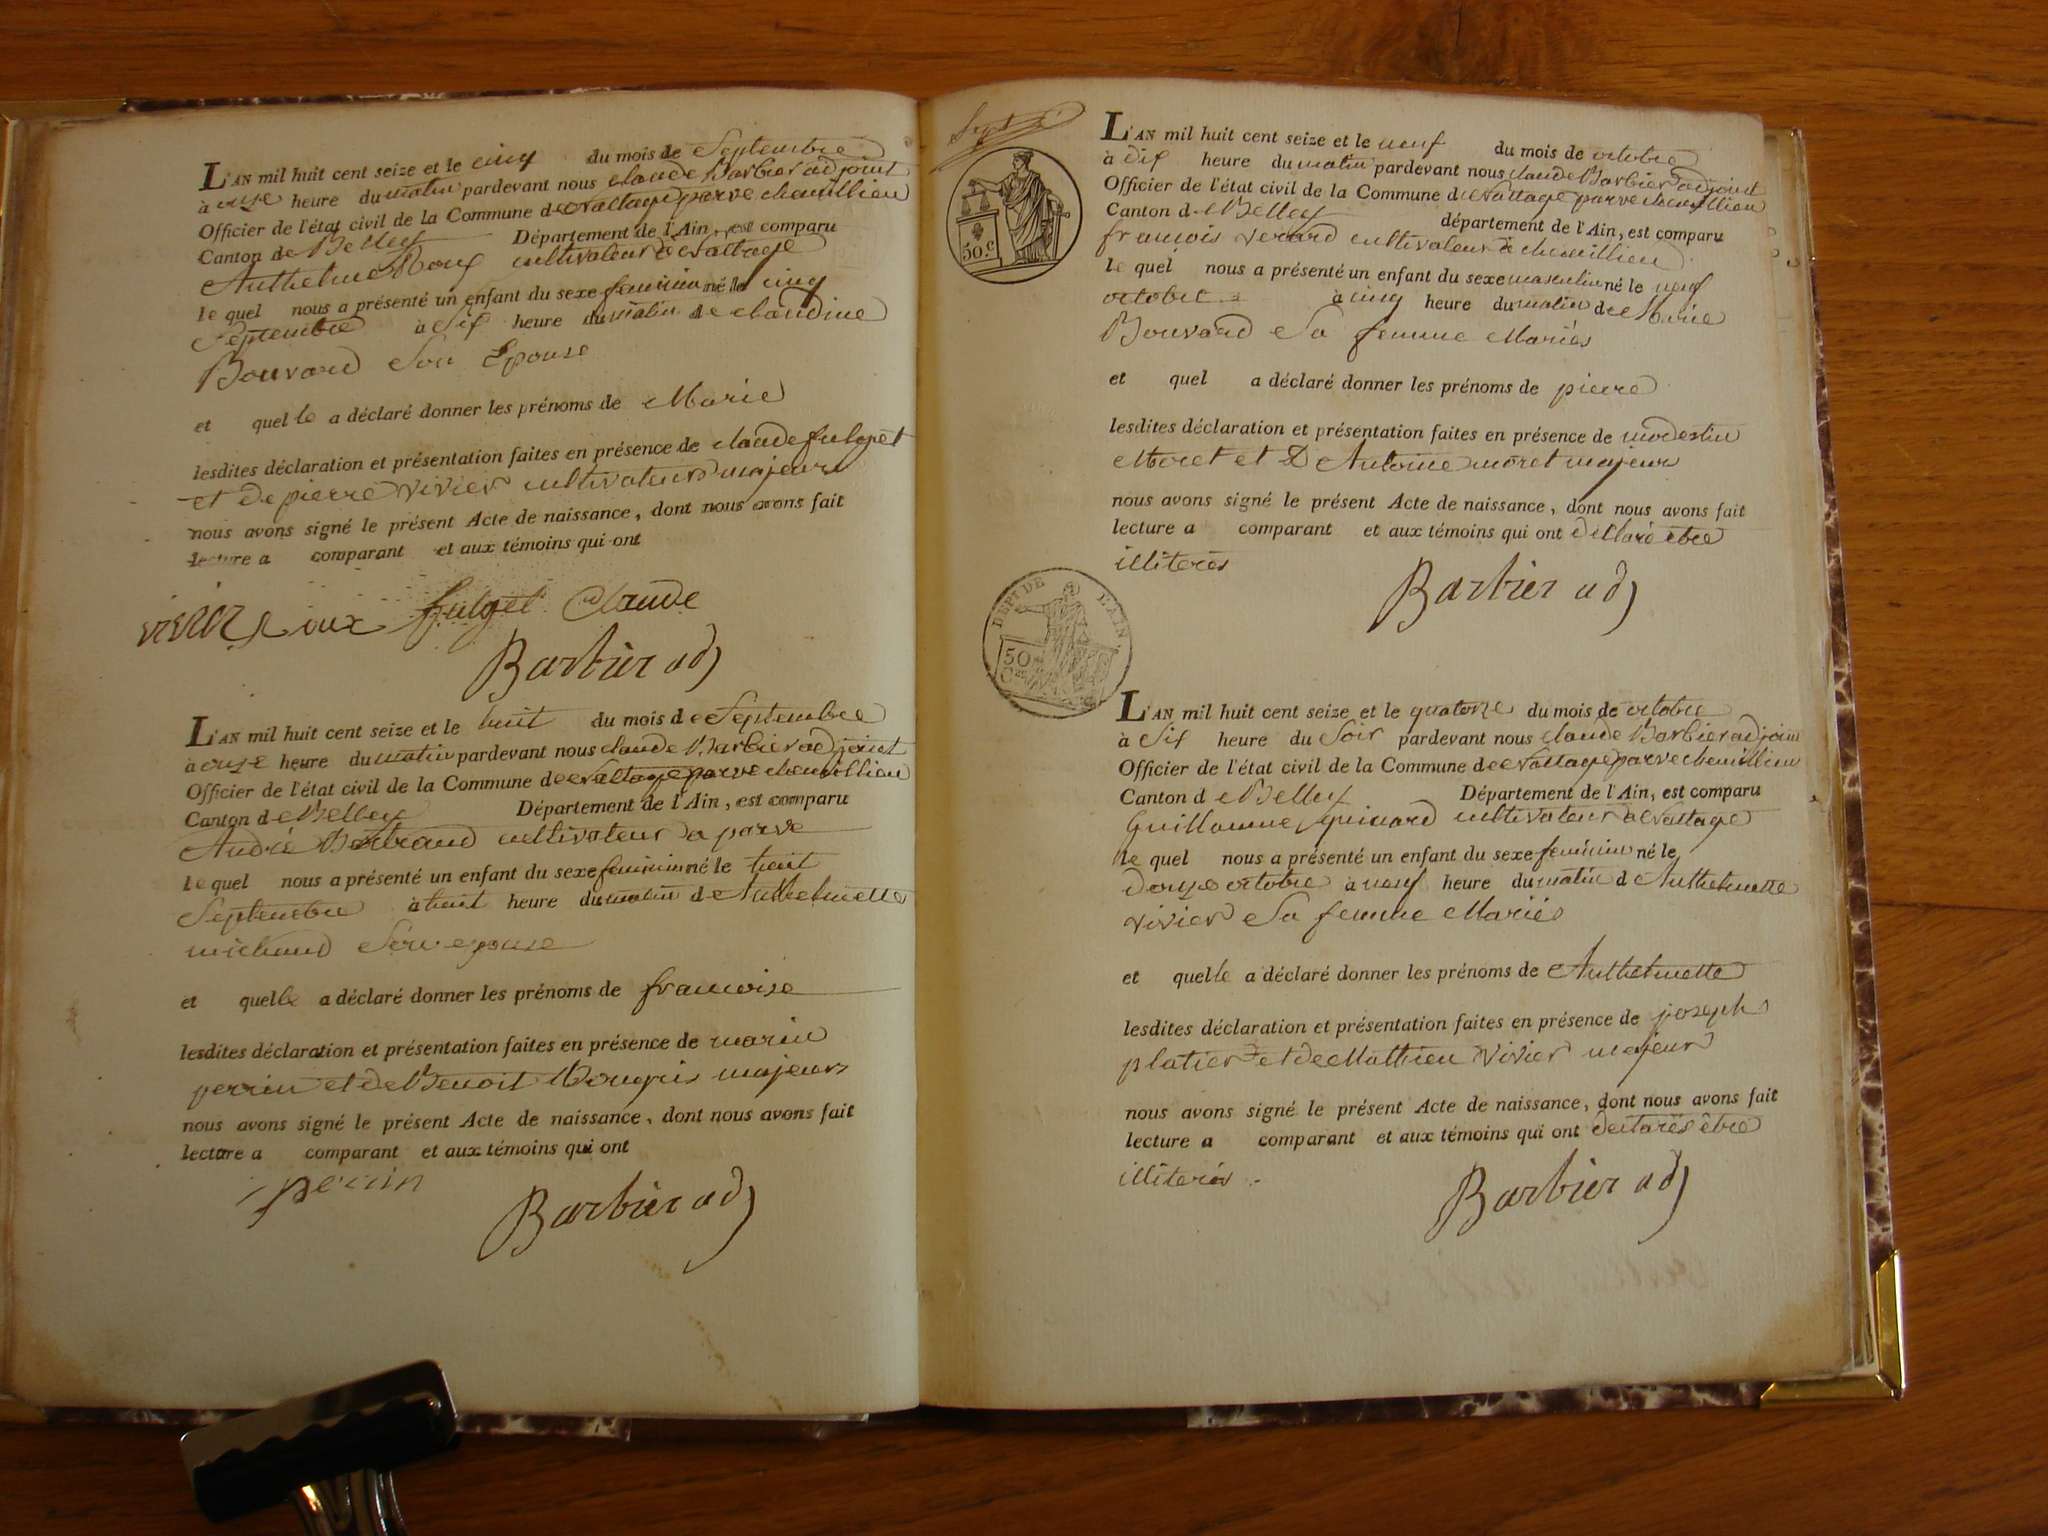 L'AN mil huit cent seize et le cinq du mois de Septembre
à onze heure du matin pardevant nous claude Barbier adjoint
Officier de l'état civil de la Commune de parve chemillieu
Canton de Belley Département de l'Ain, est comparu
Anthelme Roux cultivateur
le quel nous a présenté un enfant du sexe feminin né le cinq
Septembre à Six heure du matin de claudine
Bouvard Son Epouse
et quel le a déclaré donner les prénoms de Marie
lesdites déclaration et présentation faites en présence de claude fulget
et de pierre vivier cultivateurs majeurs
nous avons signé le présent Acte de naissance, dont nous avons fait
lecture a comparant et aux témoins qui ont
vivier roux fulget Claude
Barbier adj
L'AN mil huit cent seize et le huit du mois de Septembre
à onze heure du matin pardevant nous claude Barbier adjoint
Officier de l'état civil de la Commune de parve chemillieu
Canton de Belley Département de l'Ain, est comparu
André Bertrand cultivateur a parve
le quel nous a présenté un enfant du sexe feminin né le huit
Septembre à huit heure du matin de Anthelmette
michaud Son epouse
et quelle a déclaré donner les prénoms de francoise
lesdites déclaration et présentation faites en présence de marin
perrin et de Benoit majeurs
nous avons signé le présent Acte de naissance, dont nous avons fait
lecture a comparant et aux témoins qui ont
perrin
Barbier adj
Sept
50.c
L'AN mil huit cent seize et le neuf du mois de octobre
à dix heure du matin pardevant nous claude Barbier adjoint
Officier de l'état civil de la Commune de parve chemillieu
Canton de Belley département de l'Ain, est comparu
francois verard cultivateur à chemillieu
le quel nous a présenté un enfant du sexe masculin né le neuf
octobre à cinq heure du matin de Marie
Bouvard Sa femme Mariés
et quel a déclaré donner les prénoms de pierre
lesdites déclaration et présentation faites en présence de modestin
Moret et D Antoine moret majeurs
nous avons signé le présent Acte de naissance, dont nous avons fait
lecture a comparant et aux témoins qui ont déclaré etre
illiterés
Barbier adj
DEPT DE L'AIN.
50
Ces
L'AN mil huit cent seize et le quatorze du mois de octobre
à Six heure du Soir pardevant nous claude Barbier adjoint
Officier de l'état civil de la Commune de parve chemillieu
Canton de Belley Département de l'Ain, est comparu
Guillaume cultivateur
le quel nous a présenté un enfant du sexe feminin né le
douze octobre à neuf heure du matin d Anthelmette
vivier Sa femme Mariés
et quelle a déclaré donner les prénoms de Anthelmette
lesdites déclaration et présentation faites en présence de joseph
platier et de Mathieu vivier majeurs
nous avons signé le présent Acte de naissance, dont nous avons fait
lecture a comparant et aux témoins qui ont declarés être
illiterés
Barbier adj